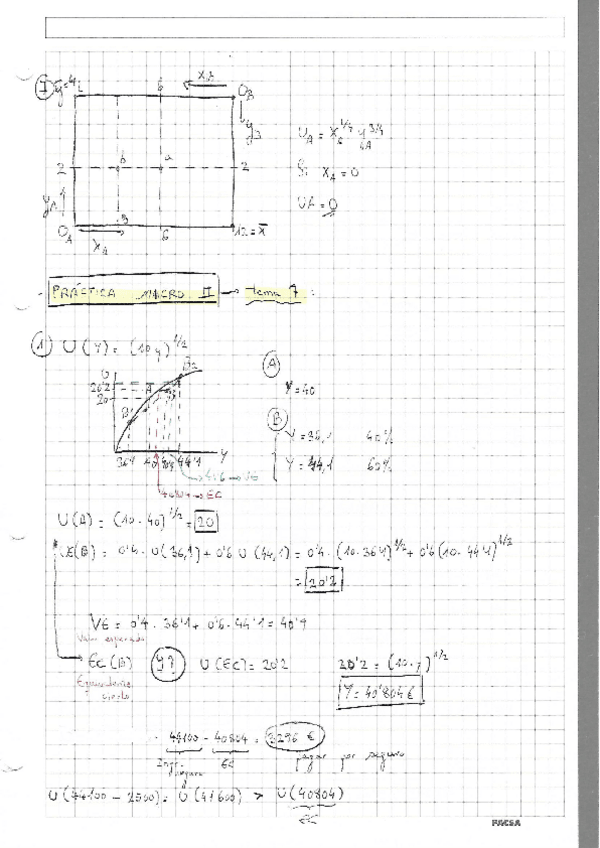 I ȳ=4 6 X_B O_B
y_B
U_A = X_A^1/4 y_A^3/4
2 b a 2 Si X_A = 0
y_A U_A = 0
O_A 3 6 12 = x̄
X_A
PRÁCTICA MICRO II → tema 7:
1 U(Y) = (10y)^1/2
U B2 A
20'2 A
20 Y = 40
B1 B
Y = 36,1 40%
36'1 40 44'1 Y Y = 44,1 60%
→ VE
40'804 → EC
U(A) = (10·40)^1/2 = 20
UE(B) = 0'4·U(36,1) + 0'6 U(44,1) = 0'4·(10·36'1)^1/2 + 0'6(10·44'1)^1/2
= 20'2
VE = 0'4·36'1 + 0'6·44'1 = 40'9
Valor esperado
EC(B) Y? U(EC) = 20'2 20'2 = (10·y)^1/2
Equivalente cierto
Y = 40'804 €
44100 - 40804 = 3296 €
EC pagar por seguro
seguro
U(44100 - 2500) = U(41600) > U(40804)
EC
PACSA